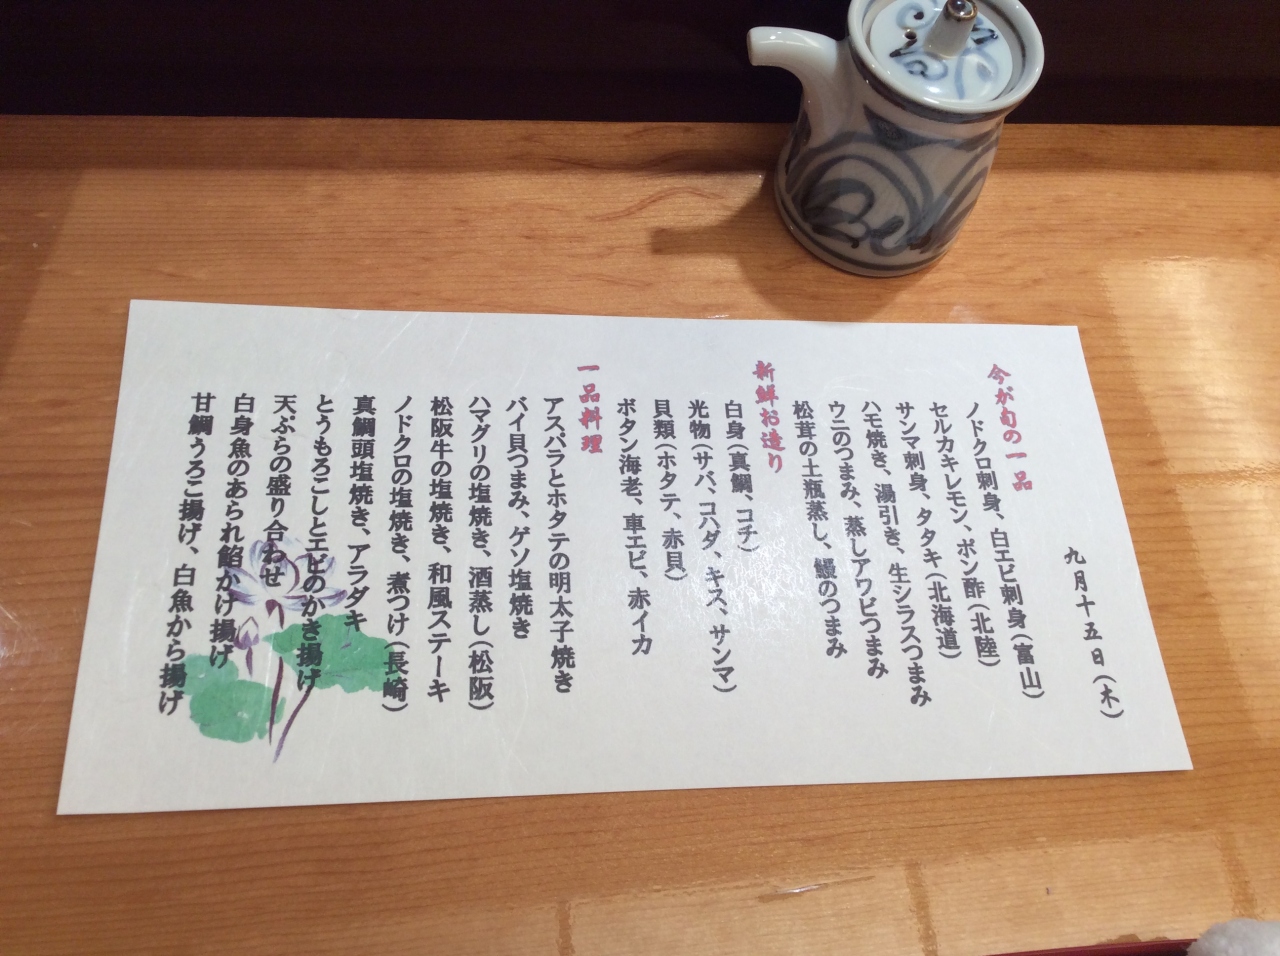 九月十五日(木)
今が旬の一品
ノドクロ刺身、白エビ刺身(富山)
セルカキレモン、ポン酢(北陸)
サンマ刺身、タタキ(北海道)
ハモ焼き、湯引き、生シラスつまみ
ウニのつまみ、蒸しアワビつまみ
松茸の土瓶蒸し、鰻のつまみ
新鮮お造り
白身(真鯛、コチ)
光物(サバ、コハダ、キス、サンマ)
貝類(ホタテ、赤貝)
ボタン海老、車エビ、赤イカ
一品料理
アスパラとホタテの明太子焼き
バイ貝つまみ、ゲソ塩焼き
ハマグリの塩焼き、酒蒸し(松阪)
松阪牛の塩焼き、和風ステーキ
ノドクロの塩焼き、煮つけ(長崎)
真鯛頭塩焼き、アラダキ
とうもろこしとエビのかき揚げ
天ぷらの盛り合わせ
白身魚のあられ餡かけ揚げ
甘鯛うろこ揚げ、白魚から揚げ